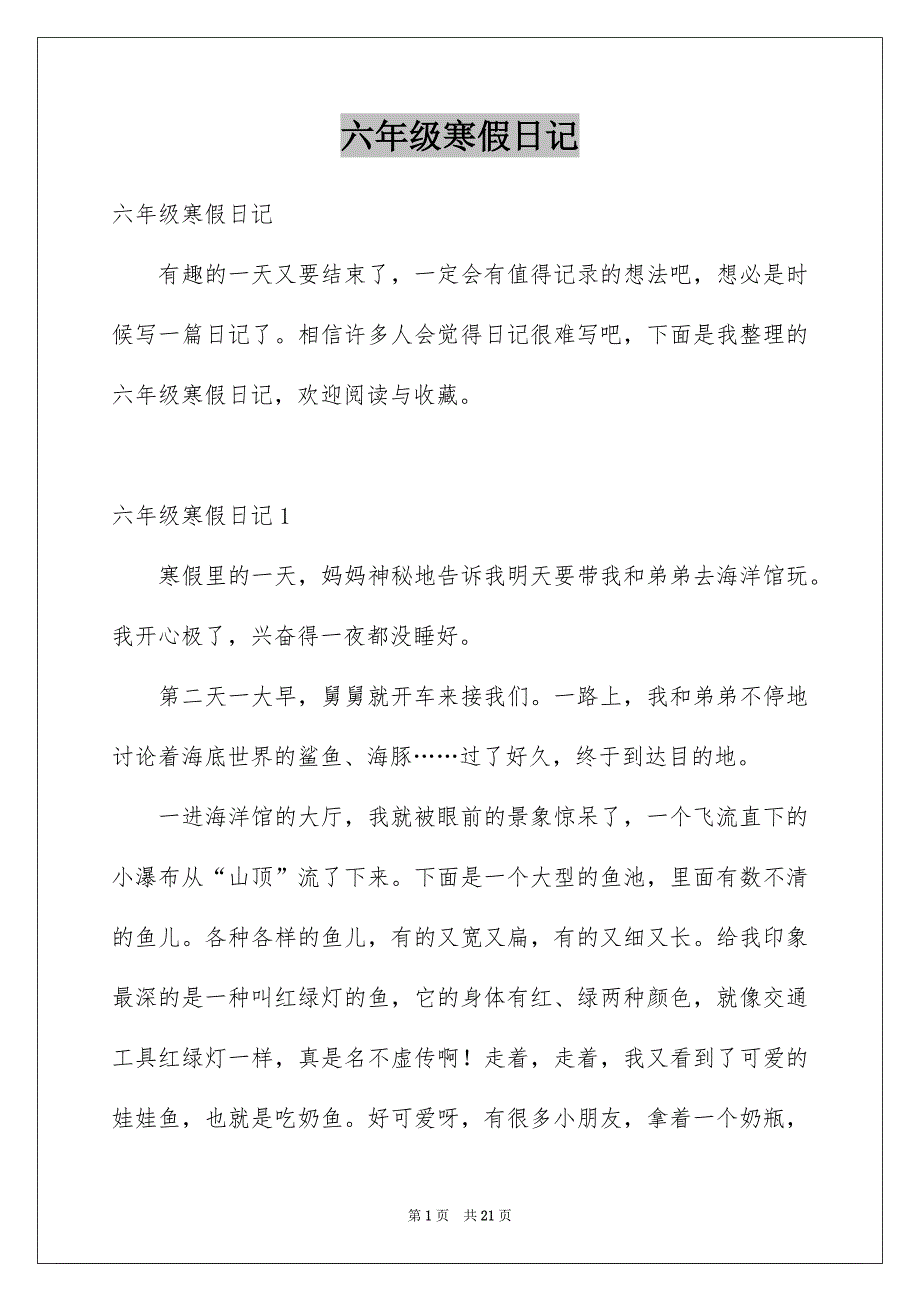 六年级寒假日记
六年级寒假日记
有趣的一天又要结束了，一定会有值得记录的想法吧，想必是时
候写一篇日记了。相信许多人会觉得日记很难写吧，下面是我整理的
六年级寒假日记，欢迎阅读与收藏。
六年级寒假日记 1
寒假里的一天，妈妈神秘地告诉我明天要带我和弟弟去海洋馆玩。
我开心极了，兴奋得一夜都没睡好。
第二天一大早，舅舅就开车来接我们。一路上，我和弟弟不停地
讨论着海底世界的鲨鱼、海豚……过了好久，终于到达目的地。
一进海洋馆的大厅，我就被眼前的景象惊呆了，一个飞流直下的
小瀑布从“山顶”流了下来。下面是一个大型的鱼池，里面有数不清
的鱼儿。各种各样的鱼儿，有的又宽又扁，有的又细又长。给我印象
最深的是一种叫红绿灯的鱼，它的身体有红、绿两种颜色，就像交通
工具红绿灯一样，真是名不虚传啊！走着，走着，我又看到了可爱的
娃娃鱼，也就是吃奶鱼。好可爱呀，有很多小朋友，拿着一个奶瓶，
第 1 页 共 21 页